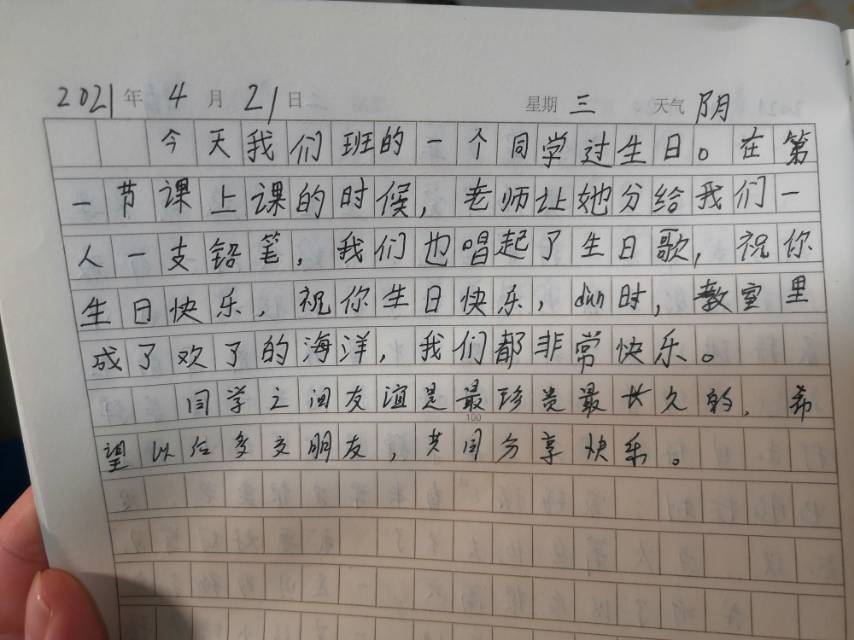 2021年 4月 21日 星期 三 天气 阴
今天我们班的一个同学过生日。在第
一节课上课的时候，老师让她分给我们一
人一支铅笔，我们也唱起了生日歌，祝你
生日快乐，祝你生日快乐，dùn时，教室里
成了欢了的海洋，我们都非常快乐。
同学之间友谊是最珍贵最长久的，希
100
望以后多交朋友，共同分享快乐。